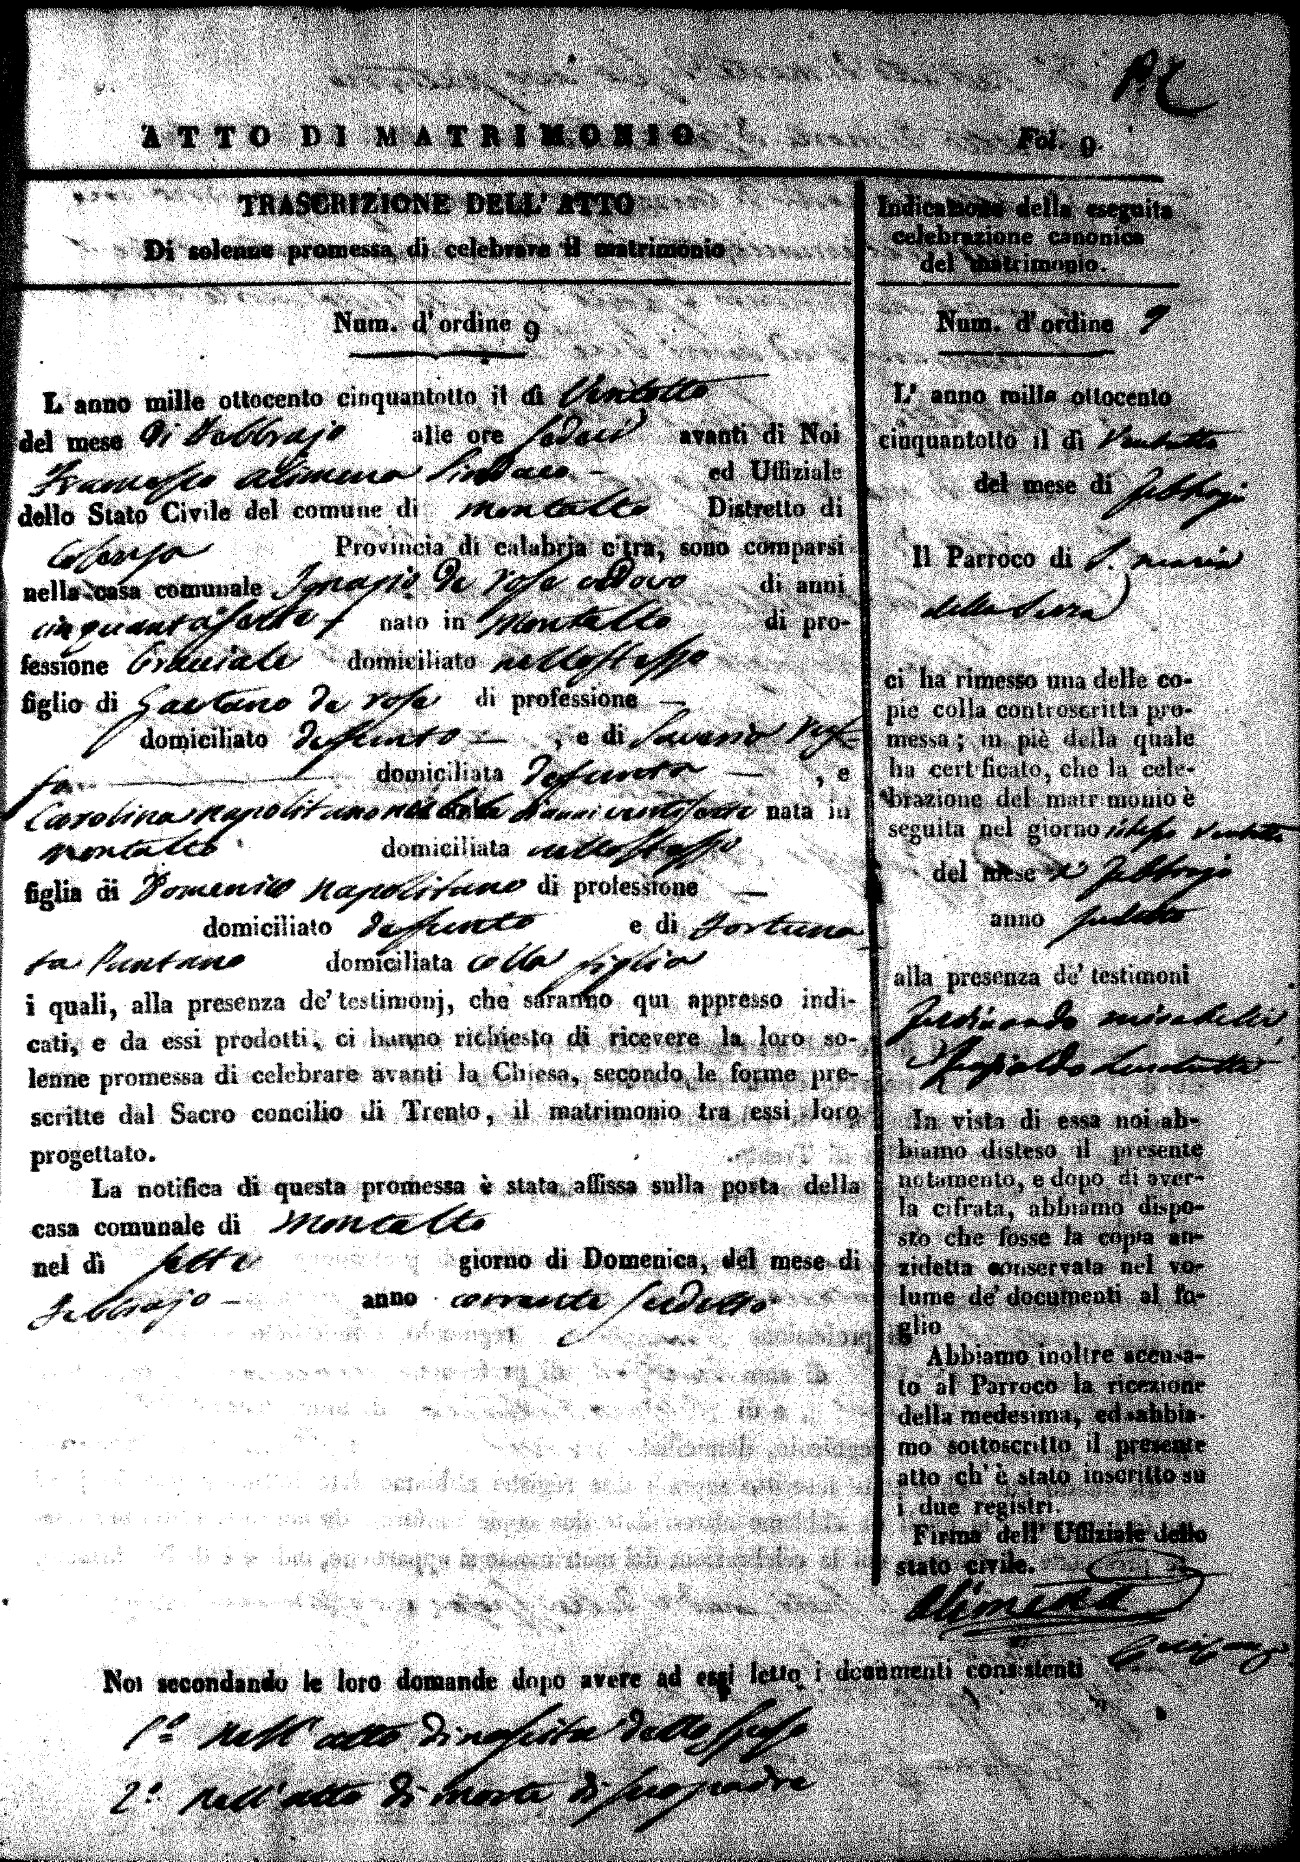 ATTO DI MATRIMONIO
Fol. 9.
TRASCRIZIONE DELL' ATTO
Di solenne promessa di celebrare il matrimonio
Num. d' ordine 9
L' anno mille ottocento cinquantotto il dì Ventotto
del mese di Febbrajo alle ore sedeci avanti di Noi
Francesco Alimena Sindaco ed Uffiziale
dello Stato Civile del comune di Montalto Distretto di
Cosenza Provincia di calabria citra, sono comparsi
nella casa comunale Ignazio De Rose vedovo di anni
cinquantasette nato in Montalto di pro-
fessione Bracciale domiciliato nello stesso
figlio di Gaetano de rose di professione —
domiciliato defunto — , e di Saveria
domiciliata defunta — , e
Carolina napolitano nubile d'anni ventisette nata in
Montalto domiciliata nello stesso
figlia di Domenico napolitano di professione —
domiciliato defunto e di Fortuna
ta Puntano domiciliata colla figlia
i quali, alla presenza de' testimonj, che saranno qui appresso indi-
cati, e da essi prodotti, ci hanno richiesto di ricevere la loro so-
lenne promessa di celebrare avanti la Chiesa, secondo le forme pre-
scritte dal Sacro concilio di Trento, il matrimonio tra essi loro
progettato.
La notifica di questa promessa è stata affissa sulla porta della
casa comunale di Montalto
nel dì sette giorno di Domenica, del mese di
Febbrajo — anno corrente suddetto
Indicazione della eseguita
celebrazione canonica
del matrimonio.
Num. d' ordine 9
L' anno mille ottocento
cinquantotto il dì Ventotto
del mese di Febbrajo
Il Parroco di S. Maria
della Serra
ci ha rimesso una delle co-
pie colla controscritta pro-
messa; in piè della quale
ha certificato, che la cele-
brazione del matrimonio è
seguita nel giorno istesso Ventotto
del mese di Febbrajo
anno suddetto
alla presenza de' testimoni
Ferdinando Mirabelli
In vista di essa noi ab-
biamo disteso il presente
notamento, e dopo di aver-
la cifrata, abbiamo dispo-
sto che fosse la copia an-
zidetta conservata nel vo-
lume de' documenti al fo-
glio
Abbiamo inoltre accusa-
to al Parroco la ricezione
della medesima, ed abbia-
mo sottoscritto il presente
atto ch' è stato inscritto su
i due registri.
Firma dell' Uffiziale dello
stato civile.
Alimena
Noi secondando le loro domande dopo avere ad essi letto i documenti consistenti
1.° Nell' atto di nascita dello sposo
2.° Nell' atto di morte di suo padre